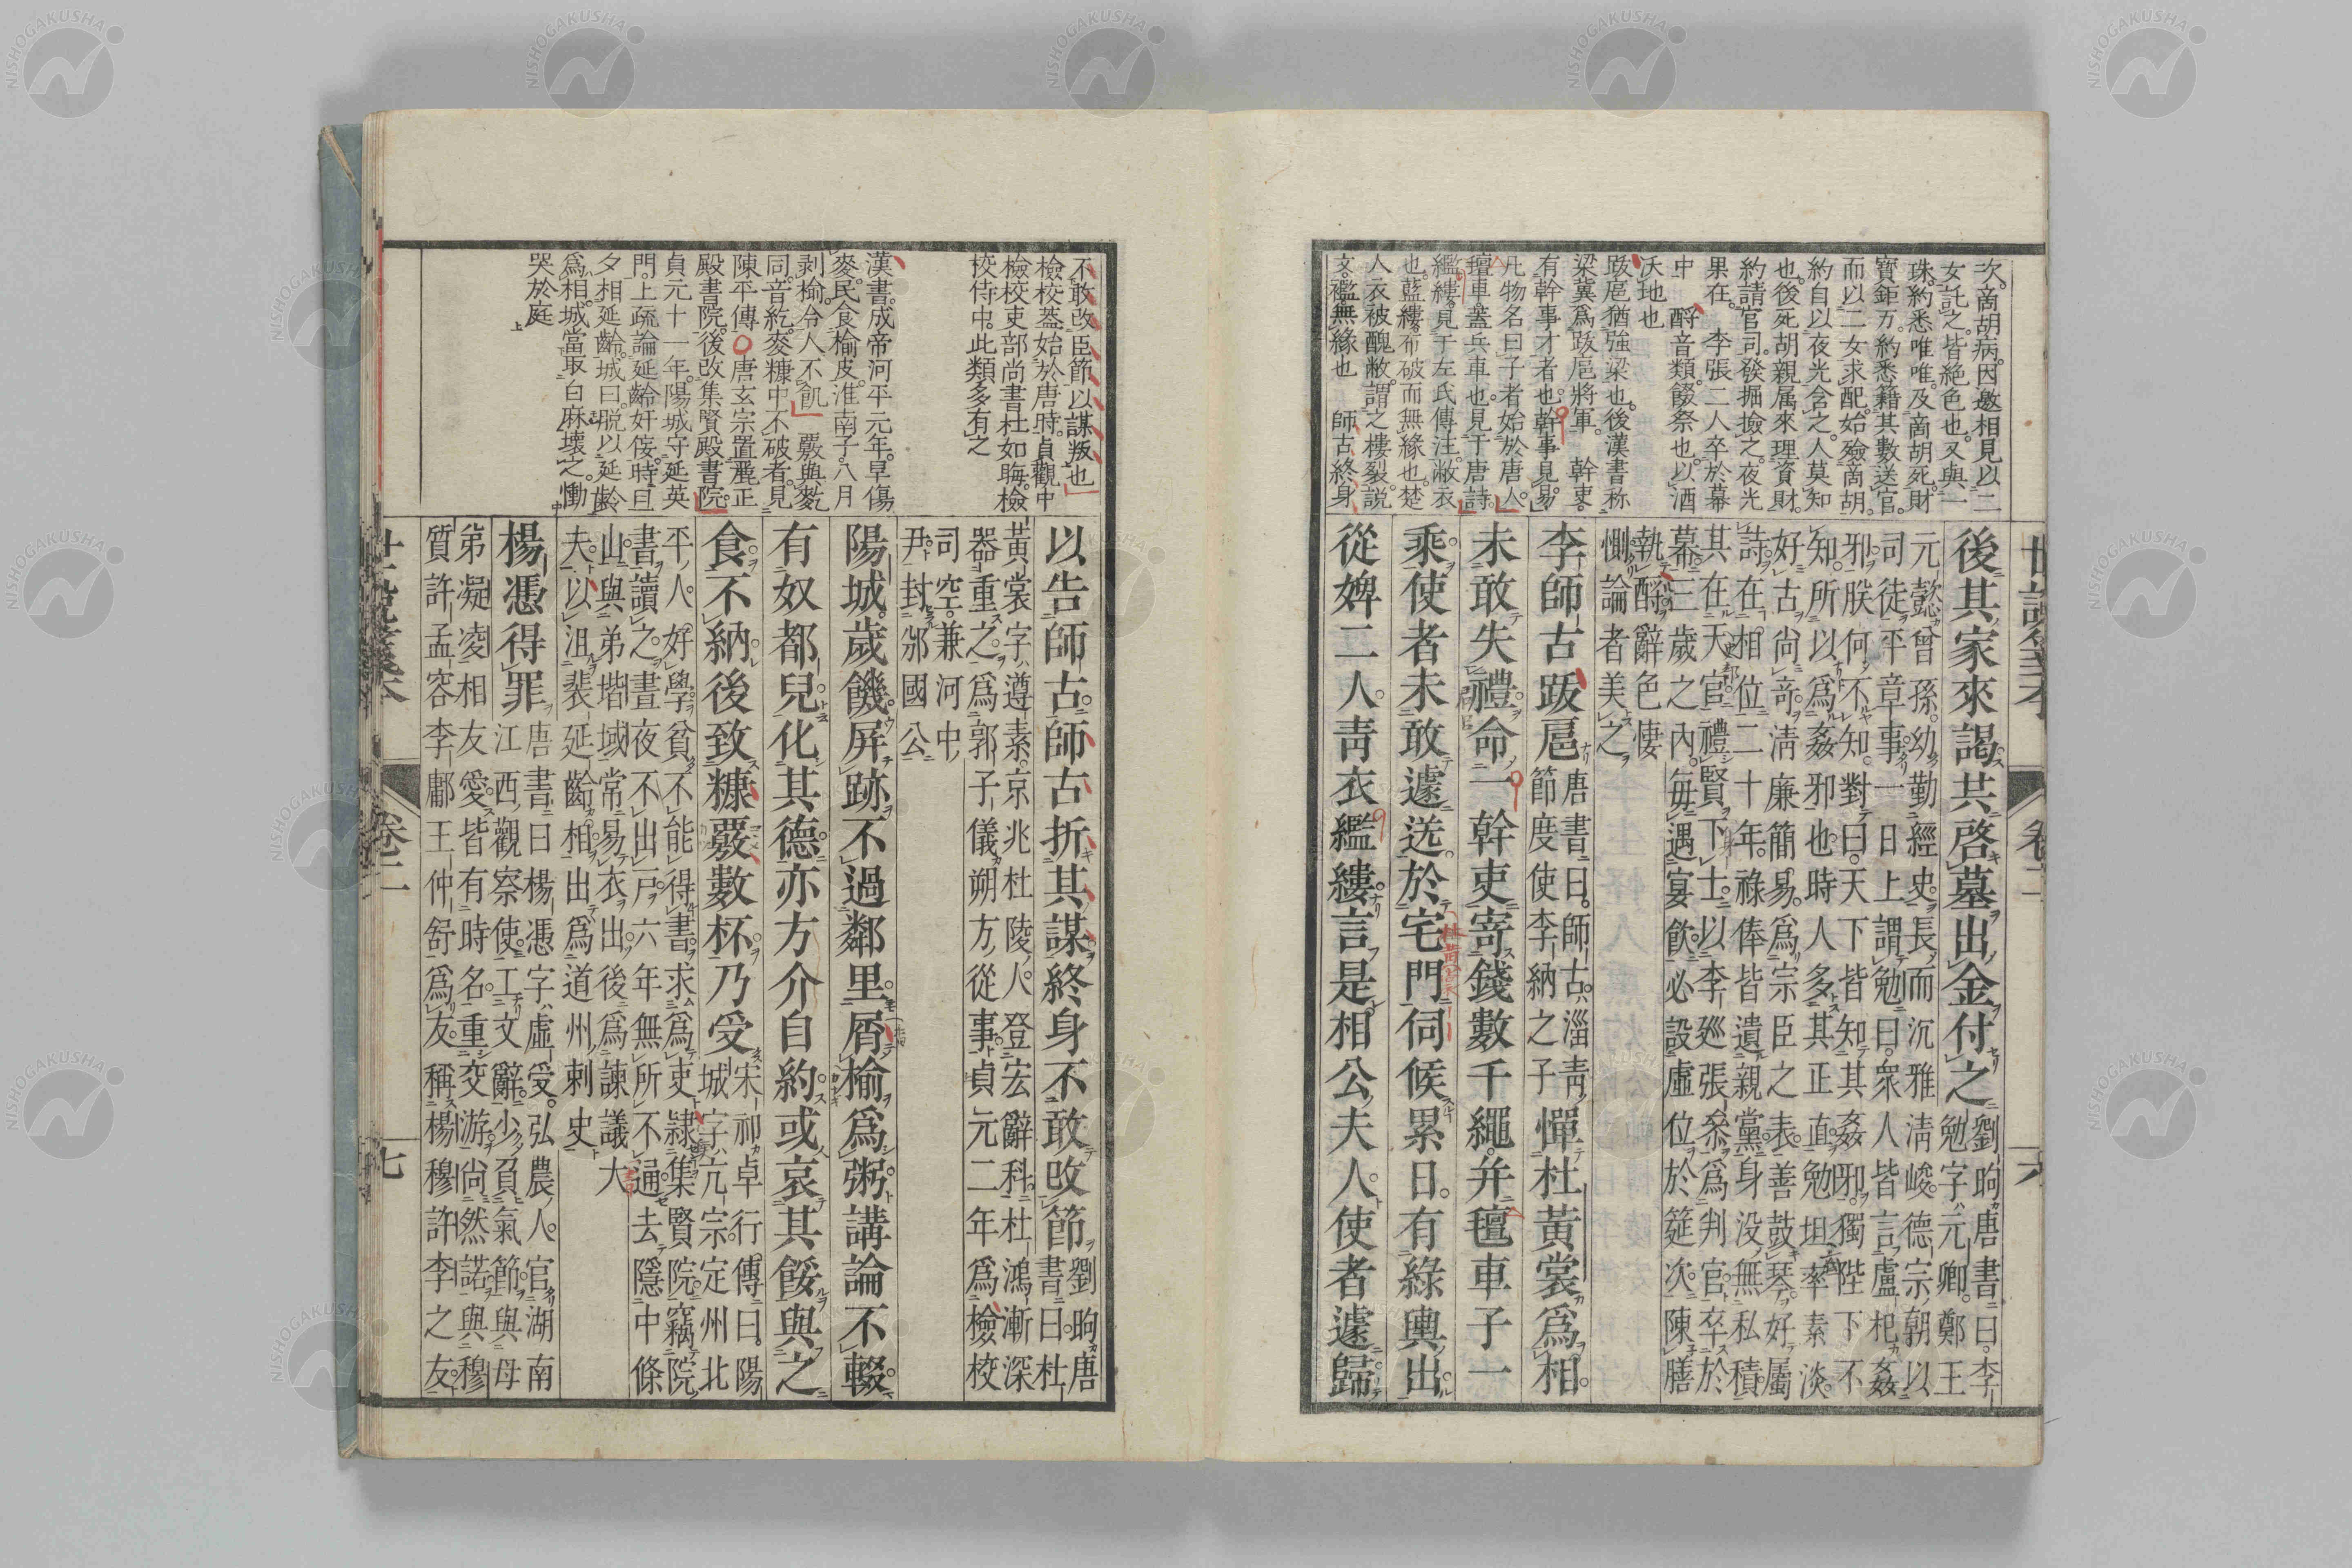 次。啇胡病。因邀相見以二
女託之。皆絕色也。又與一
珠。約悉唯唯。及啇胡死。財
寶鉅万。約悉籍其數送官。
而以二女求配。始殮啇胡。
約自以夜光含之。人莫知
也。後死胡親属來理資財。
約請官司。發掘撿之。夜光
果在。 李張二人卒於幕
中 酹音類。餟祭也。以酒
沃地也
跋扈猶強梁也。後漢書称
梁冀爲跋扈將軍。 幹吏
有幹事才者也。幹事見易。
凡物名曰子者始於唐人。
氊車。蓋兵車也。見于唐詩。
繿縷。見于左氏傳注。敝衣
也。藍縷。布破而無緣也。楚
人衣被醜敝。謂之樓裂。説
文。襤無緣也 師古終身
後其家來謁。共啓墓出金付之
劉昫唐書曰。李
勉字元卿。鄭王
元懿曾孫。幼勤經史。長而沉雅淸峻。德宗朝以
司徒平章事。一日上謂勉曰。衆人皆言盧杞姦
邪。朕何不知。對曰。天下皆知其姦邪。獨陛下不
知。所以爲姦邪也。時人多其正直。勉坦率素淡。
好古尙竒。淸廉簡易。爲宗臣之表。善鼓琴。好屬
詩。在相位二十年。祿俸皆遺親黨。身没無私積。
其在天官。禮賢下士。以李廵張叅爲判官。卒於
幕。三歲之內。毎遇宴飮。必設虛位於筵次。陳膳
執酹。辭色悽
惻。論者美之
李師古跋扈
唐書曰。師古淄靑
節度使李納之子
憚杜黃裳爲相。
未敢失禮。命一幹吏寄錢數千繩。并氊車子一
乘。使者未敢遽送。於宅門伺候累日。有綠輿出。
從婢二人。靑衣繿縷。言是相公夫人。使者遽歸。
不敢改臣節以謀叛也
檢校蓋始於唐時。貞觀中
檢校吏部尙書杜如晦。檢
校侍中。此類多有之
漢書。成帝河平元年。旱傷
麥。民食榆皮。淮南子。八月
剥榆。令人不飢 覈與麧
同。音紇。麥糠中不破者。見
陳平傳 唐玄宗置麗正
殿書院。後改集賢殿書院。
貞元十一年。陽城守延英
門。上疏論延齡奸侫。時旦
夕相延齡。城曰。脱以延齡
爲相。城當取白麻壞之。慟
哭於庭
以告師古。師古折其謀。終身不敢改節
劉昫唐
書曰。杜
黃裳字遵素。京兆杜陵人。登宏辭科。杜鴻漸深
器重之。爲郭子儀朔方從事。貞元二年。爲檢校
司空。兼河中
尹。封邠國公
陽城。歲饑屏跡。不過鄰里。屑榆爲粥。講論不輟。
有奴都兒。化其德。亦方介自約。或哀其餒與之
食。不納。後致糠覈數杯。乃受
宋祁卓行傳曰。陽
城字亢宗。定州北
平人。好學。貧不能得書。求爲吏隷集賢院。竊院
書讀之。晝夜不出戶。六年無所不通。去隱中條
山。與弟堦域常易衣出。後爲諫議大
夫。以沮裴延齡相。出爲道州刺史
楊憑得罪
唐書曰楊憑字虛受。弘農人。官湖南
江西觀察使。工文辭。少負氣節。與母
弟凝凌相友愛。皆有時名。重交游。尙然諾。與穆
質許孟容李鄘王仲舒爲友。稱楊穆許李之友。